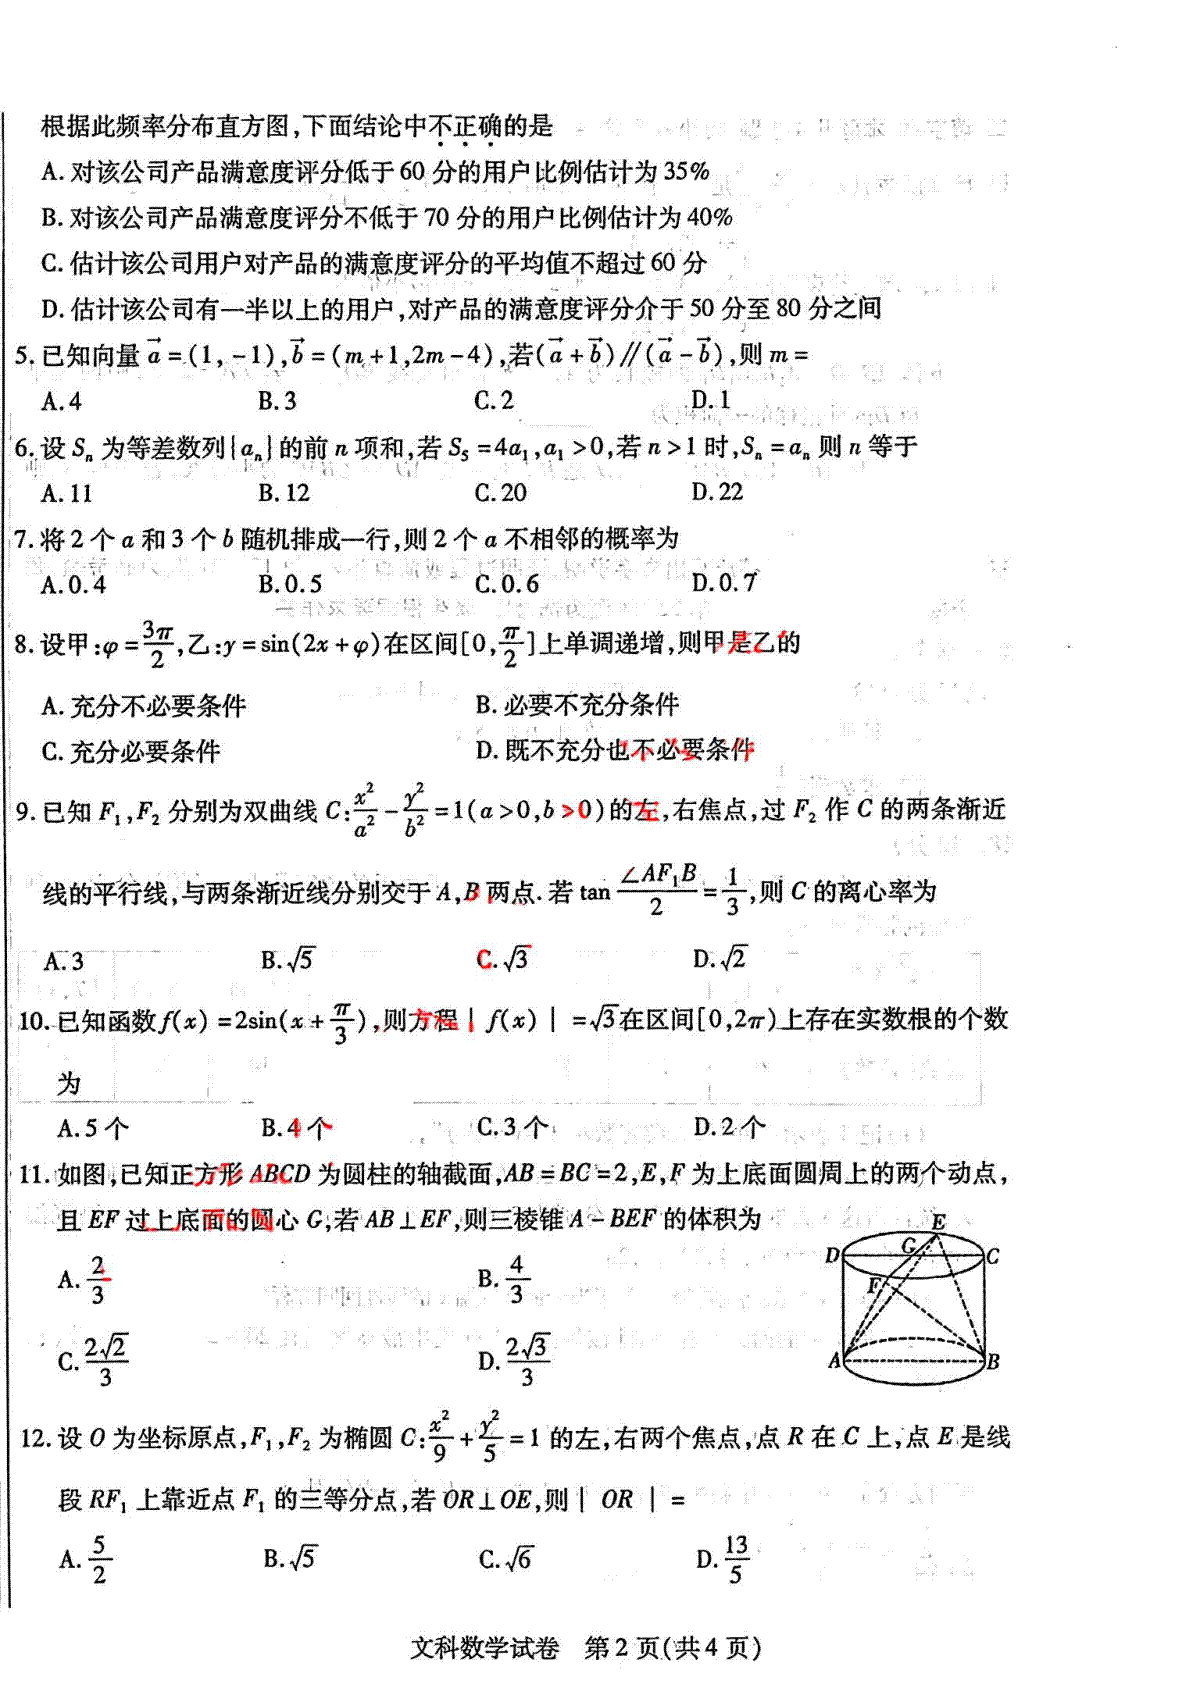 根据此频率分布直方图,下面结论中不正确的是
A.对该公司产品满意度评分低于60分的用户比例估计为35%
B.对该公司产品满意度评分不低于70分的用户比例估计为40%
C.估计该公司用户对产品的满意度评分的平均值不超过60分
D.估计该公司有一半以上的用户,对产品的满意度评分介于50分至80分之间
5.已知向量a⃗=(1,-1),b⃗=(m+1,2m-4),若(a⃗+b⃗)∥(a⃗-b⃗),则m=
A.4 B.3 C.2 D.1
6.设Sₙ为等差数列{aₙ}的前n项和,若S₅=4a₁,a₁>0,若n>1时,Sₙ=aₙ则n等于
A.11 B.12 C.20 D.22
7.将2个a和3个b随机排成一行,则2个a不相邻的概率为
A.0.4 B.0.5 C.0.6 D.0.7
8.设甲:φ=3π/2,乙:y=sin(2x+φ)在区间[0,π/2]上单调递增,则甲是乙的
A.充分不必要条件 B.必要不充分条件
C.充分必要条件 D.既不充分也不必要条件
9.已知F₁,F₂分别为双曲线C:x²/a²-y²/b²=1(a>0,b>0)的左,右焦点,过F₂作C的两条渐近
线的平行线,与两条渐近线分别交于A,B两点.若tan ∠AF₁B/2=1/3,则C的离心率为
A.3 B.√5 C.√3 D.√2
10.已知函数f(x)=2sin(x+π/3),则方程|f(x)|=√3在区间[0,2π)上存在实数根的个数
为
A.5个 B.4个 C.3个 D.2个
11.如图,已知正方形ABCD为圆柱的轴截面,AB=BC=2,E,F为上底面圆周上的两个动点,
且EF过上底面的圆心G,若AB⊥EF,则三棱锥A-BEF的体积为
A.2/3 B.4/3
C.2√2/3 D.2√3/3
E
D G C
F
A B
12.设O为坐标原点,F₁,F₂为椭圆C:x²/9+y²/5=1的左,右两个焦点,点R在C上,点E是线
段RF₁上靠近点F₁的三等分点,若OR⊥OE,则|OR|=
A.5/2 B.√5 C.√6 D.13/5
文科数学试卷 第2页(共4页)